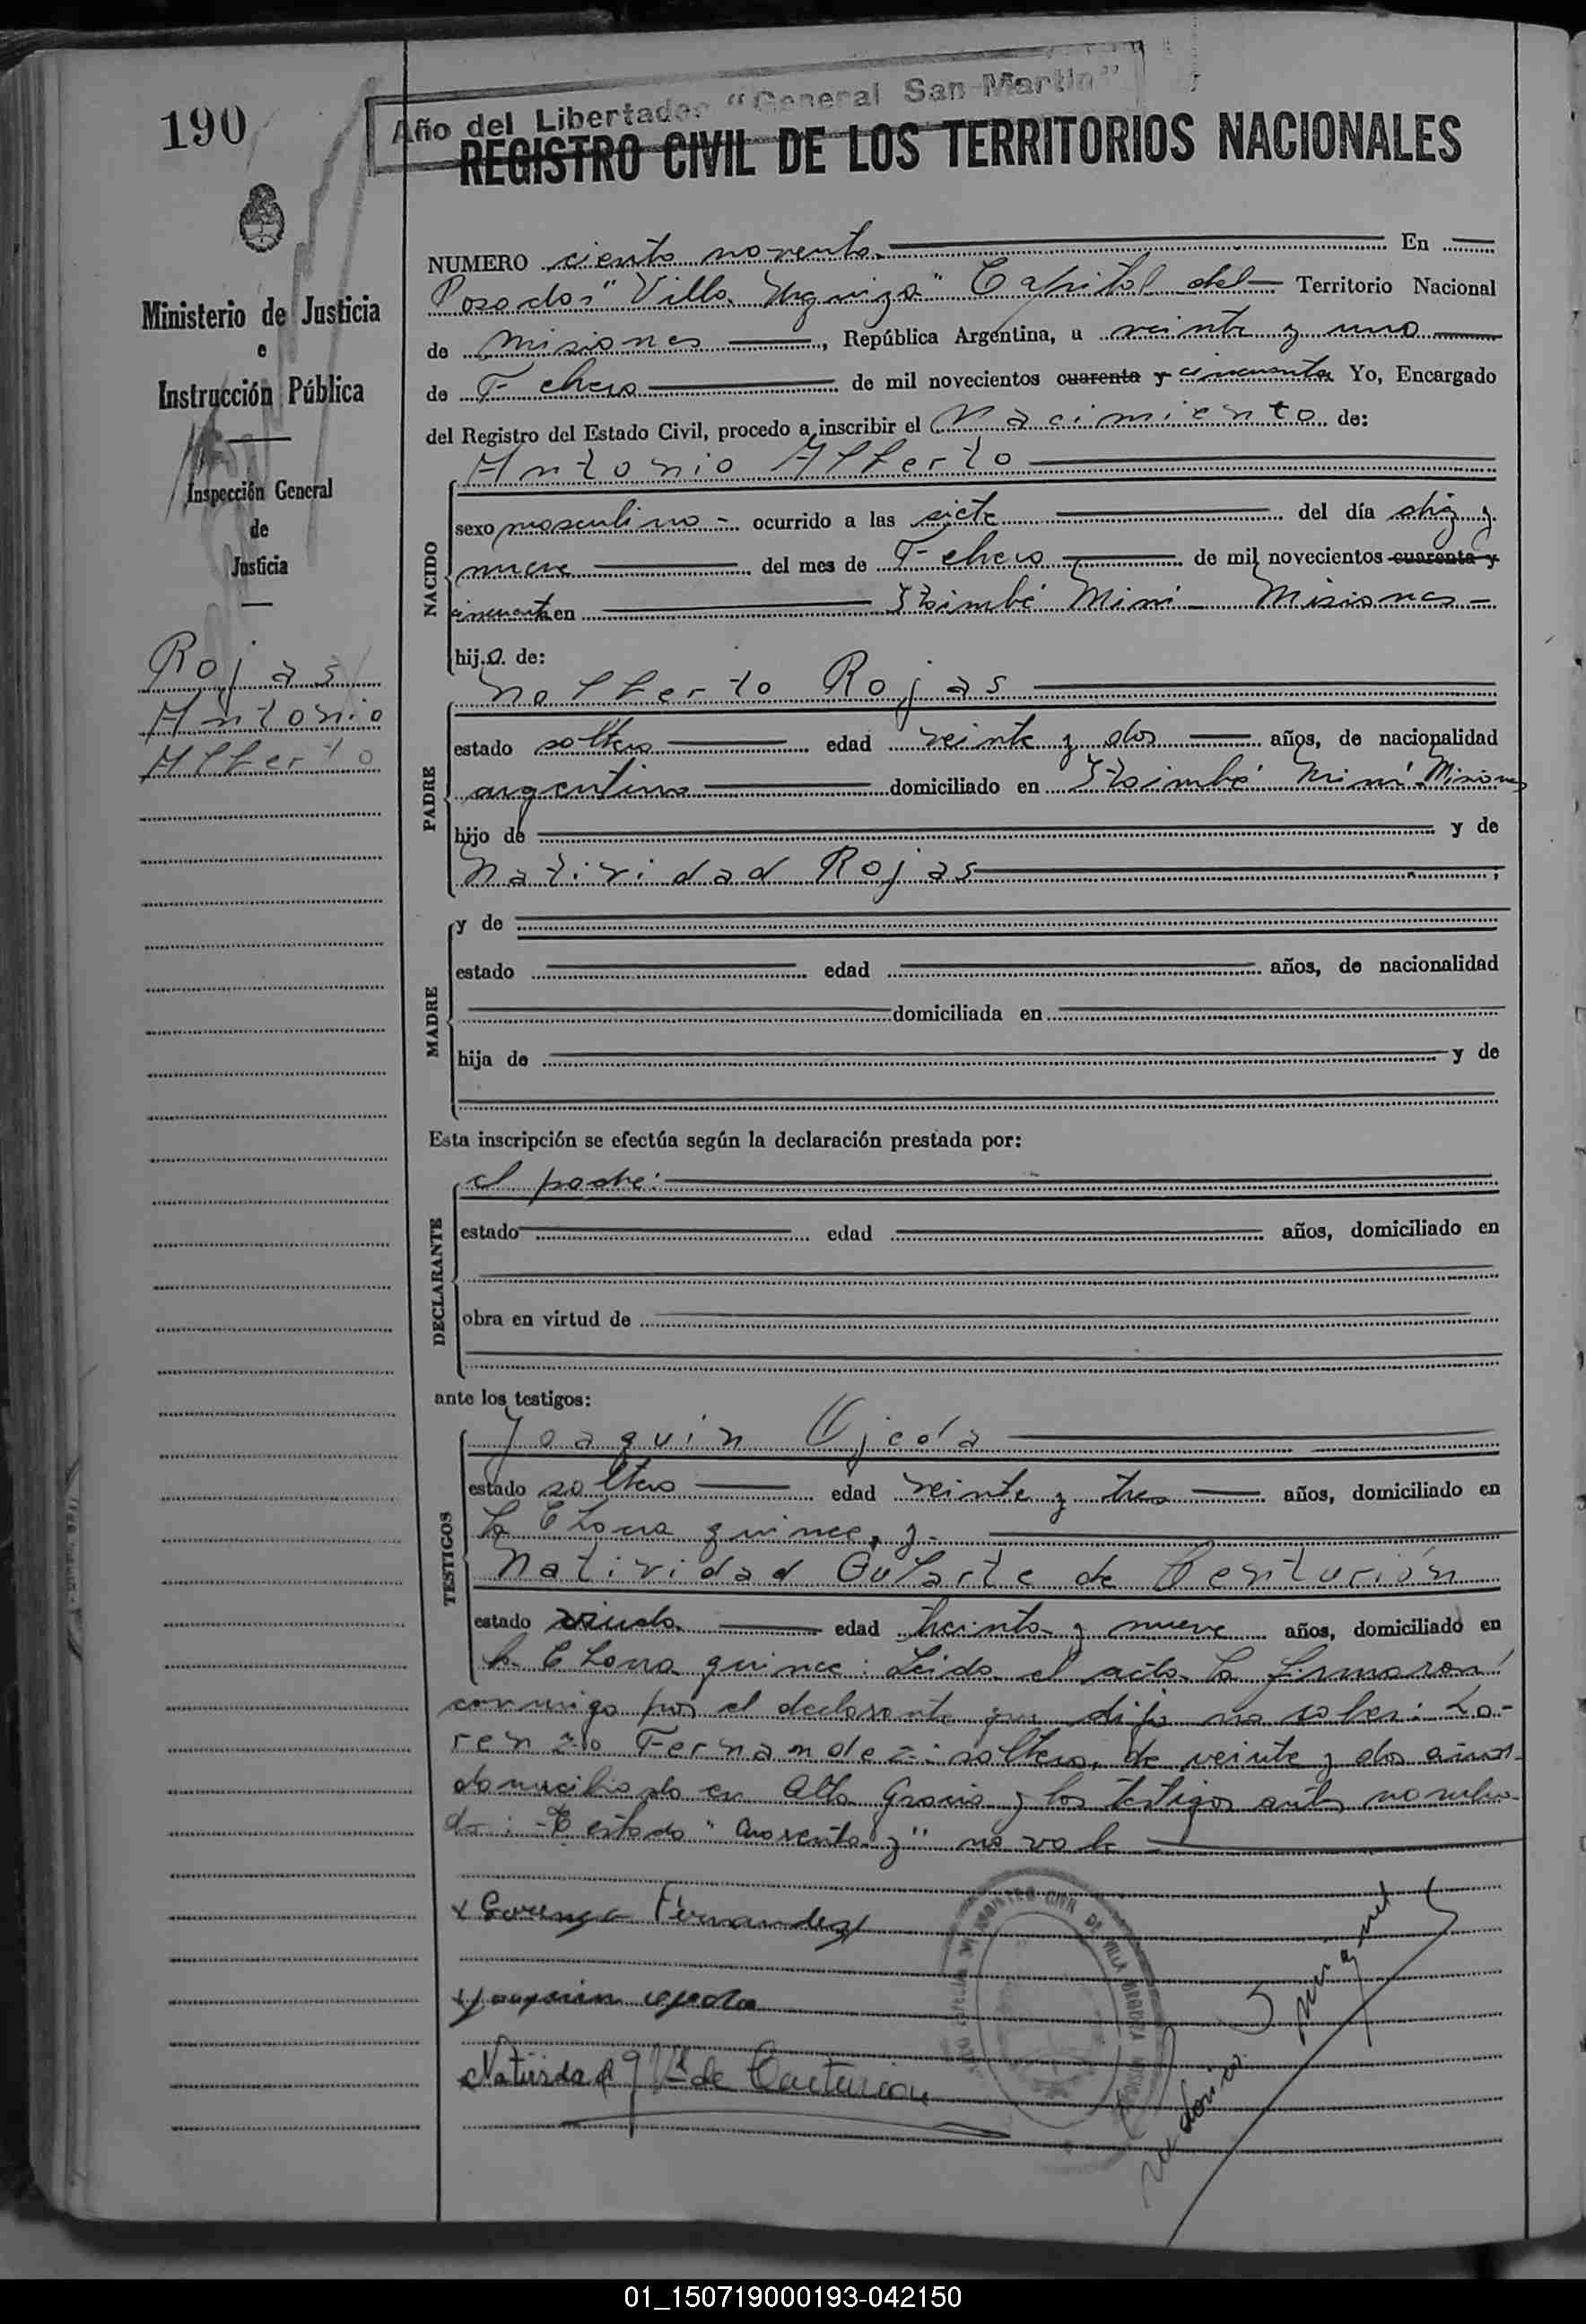 190
Año del Libertador "General San Martín"
REGISTRO CIVIL DE LOS TERRITORIOS NACIONALES
Ministerio de Justicia
e
Instrucción Pública
Inspección General
de
Justicia
Rojas
Antonio
Alberto
NUMERO ciento noventa. En
Posadas "Villa Urquiza" Capital del Territorio Nacional
de Misiones, República Argentina, a veinte y uno
de Febrero de mil novecientos cuarenta y cincuenta Yo, Encargado
del Registro del Estado Civil, procedo a inscribir el Nacimiento de:
NACIDO
Antonio Alberto
sexo masculino - ocurrido a las siete del día diez y
nueve del mes de Febrero de mil novecientos cuarenta y
cincuenta en Itaimbé Miní - Misiones -
hijo de:
PADRE
Nolberto Rojas
estado soltero edad veinte y dos años, de nacionalidad
argentino domiciliado en Itaimbé Miní Misiones
hijo de y de
Natividad Rojas
MADRE
y de
estado edad años, de nacionalidad
domiciliada en
hija de y de
Esta inscripción se efectúa según la declaración prestada por:
DECLARANTE
el padre:
estado edad años, domiciliado en
obra en virtud de
ante los testigos:
TESTIGOS
Joaquin Ojeda
estado soltero edad veinte y tres años, domiciliado en
la Chacra quince, y
Natividad Gularte de Centurión
estado viuda. edad treinta y nueve años, domiciliado en
la Chacra quince: Leida el acta la firmaron
conmigo por el declarante que dijo no saber: Lo-
renzo Fernandez: soltero, de veinte y dos años
domiciliado en Alta Gracia y los testigos antes nombra-
dos: - Testado "cuarenta y" no vale
x Lorenzo Fernandez
x Joaquin Ojeda
Natividad G Vda de Centurion
01_150719000193-042150